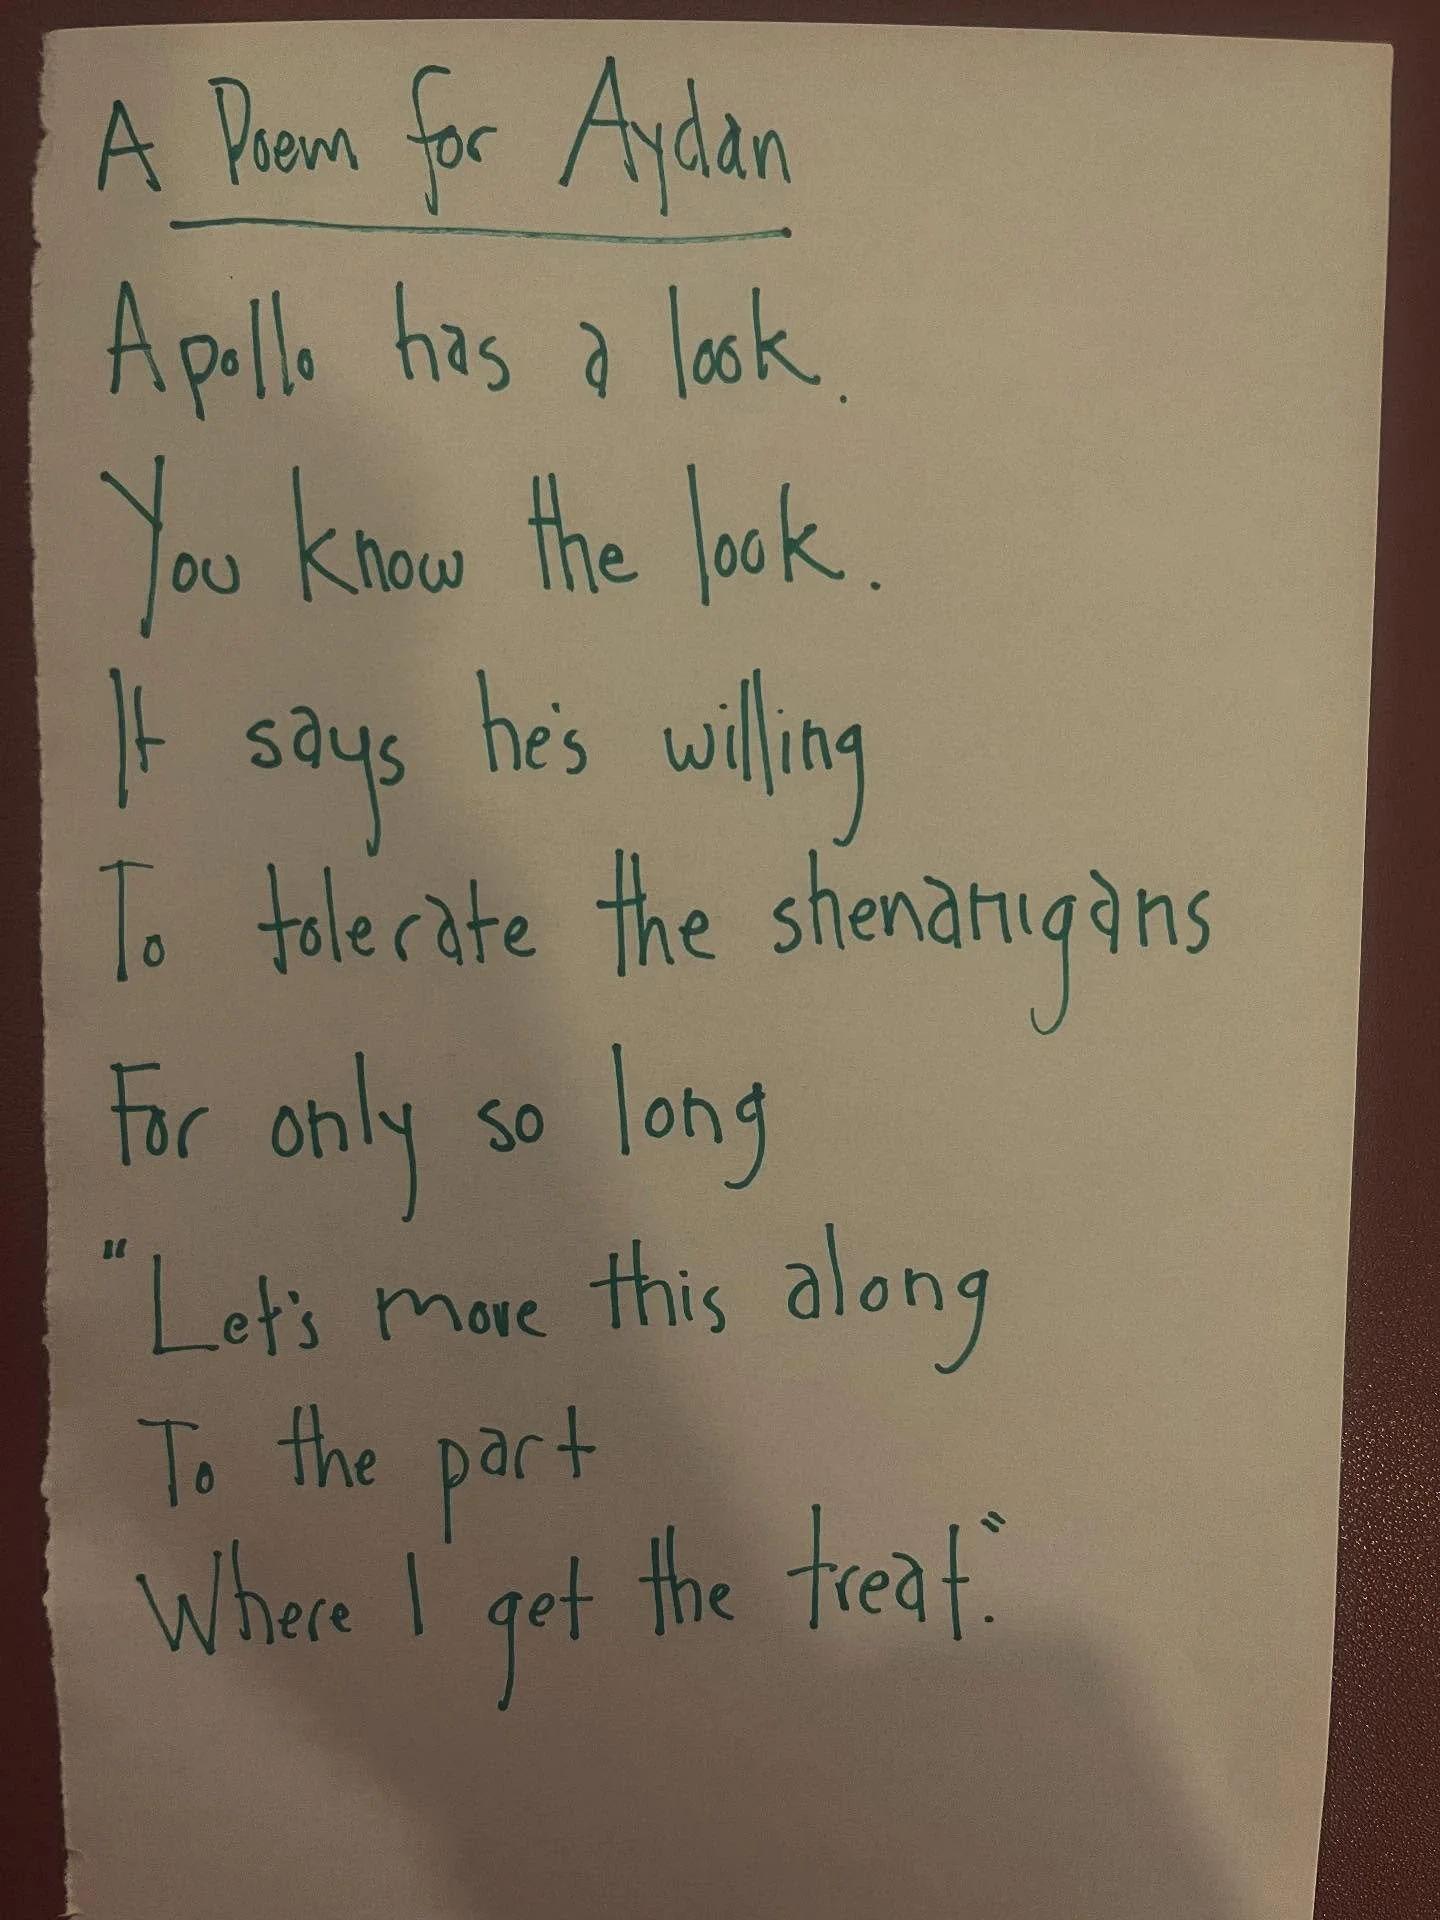 A Poem for Aydan
Apollo has a look.
You know the look.
It says he's willing
To tolerate the shenanigans
For only so long
"Let's move this along
To the part
Where I get the treat."